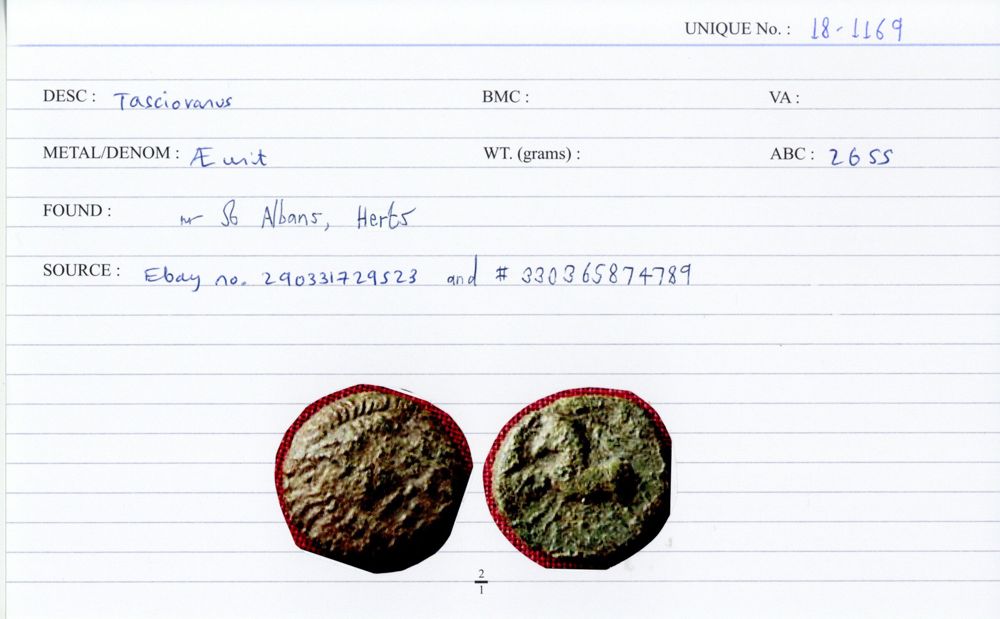 UNIQUE No. : 18-1169
DESC : Tasciovanus BMC : VA :
METAL/DENOM : Æ unit WT. (grams) : ABC : 2655
FOUND : nr St Albans, Herts
SOURCE : Ebay no. 290331729523 and # 330365874789
2
1